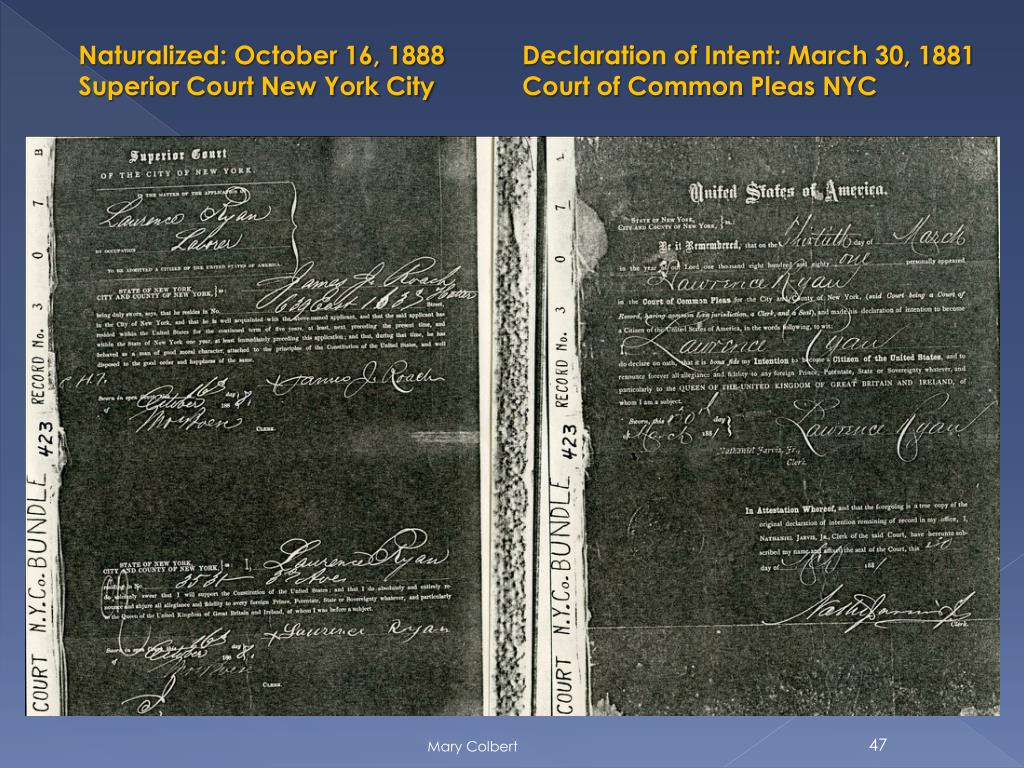 Naturalized: October 16, 1888
Superior Court New York City
Declaration of Intent: March 30, 1881
Court of Common Pleas NYC
COURT N.Y.Co. BUNDLE 423 RECORD No. 3 0 7 B
Superior Court
OF THE CITY OF NEW YORK.
IN THE MATTER OF THE APPLICATION OF
Laurence Ryan
Laborer
BY OCCUPATION
TO BE ADMITTED A CITIZEN OF THE UNITED STATES OF AMERICA.
STATE OF NEW YORK,
CITY AND COUNTY OF NEW YORK, } ss:
James J. Roach
being duly sworn, says, that he resides in No. 639 East 163d Street,
in the City of New York, and that he is well acquainted with the above-named applicant, and that the said applicant has
resided within the United States for the continued term of five years, at least, next preceding the present time, and
within the State of New York one year, at least immediately preceding this application; and that, during that time, he has
behaved as a man of good moral character, attached to the principles of the Constitution of the United States, and well
disposed to the good order and happiness of the same.
James J. Roach
Sworn in open Court, this 16th day
of October 1888.
CLERK.
STATE OF NEW YORK,
CITY AND COUNTY OF NEW YORK, } ss: I, Laurence Ryan
residing in No. 2525 3d Ave
do solemnly swear that I will support the Constitution of the United States; and that I do absolutely and entirely re-
nounce and abjure all allegiance and fidelity to every foreign Prince, Potentate, State or Sovereignty whatever, and particularly
to the Queen of the United Kingdom of Great Britain and Ireland, of whom I was before a subject.
Laurence Ryan
Sworn in open Court, this 16th day
of October 1888.
CLERK.
COURT N.Y.Co. BUNDLE 423 RECORD No. 3 0 7
United States of America.
STATE OF NEW YORK,
CITY AND COUNTY OF NEW YORK, } ss.
Be it Remembered, that on the Thirtieth day of March
in the year of our Lord one thousand eight hundred and eighty one personally appeared
Lawrence Ryan
in the Court of Common Pleas for the City and County of New York, (said Court being a Court of
Record, having common law jurisdiction, a Clerk, and a Seal), and made his declaration of intention to become
a Citizen of the United States of America, in the words following, to wit:
I, Lawrence Ryan
do declare on oath, that it is bona fide my Intention to become a Citizen of the United States, and to
renounce forever all allegiance and fidelity to any foreign Prince, Potentate, State or Sovereignty whatever, and
particularly to the QUEEN OF THE UNITED KINGDOM OF GREAT BRITAIN AND IRELAND, of
whom I am a subject.
Sworn, this 30th day
of March 1881
Lawrence Ryan
Nathaniel Jarvis, Jr.,
Clerk.
In Attestation Whereof, and that the foregoing is a true copy of the
original declaration of intention remaining of record in my office, I,
NATHANIEL JARVIS, JR., Clerk of the said Court, have hereunto sub-
scribed my name and affixed the seal of the Court, this
day of 188
Clerk.
Mary Colbert
47